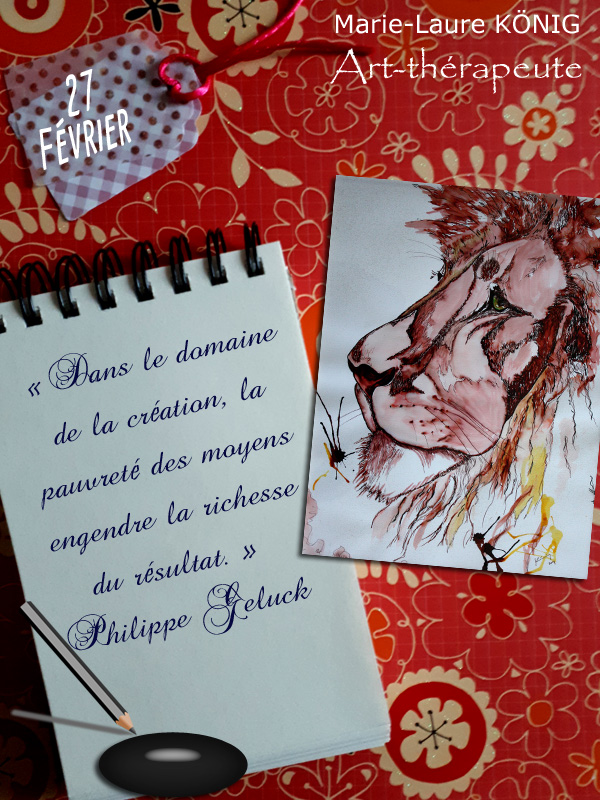 Marie-Laure KÖNIG
Art-thérapeute
27
FÉVRIER
« Dans le domaine
de la création, la
pauvreté des moyens
engendre la richesse
du résultat. »
Philippe Geluck